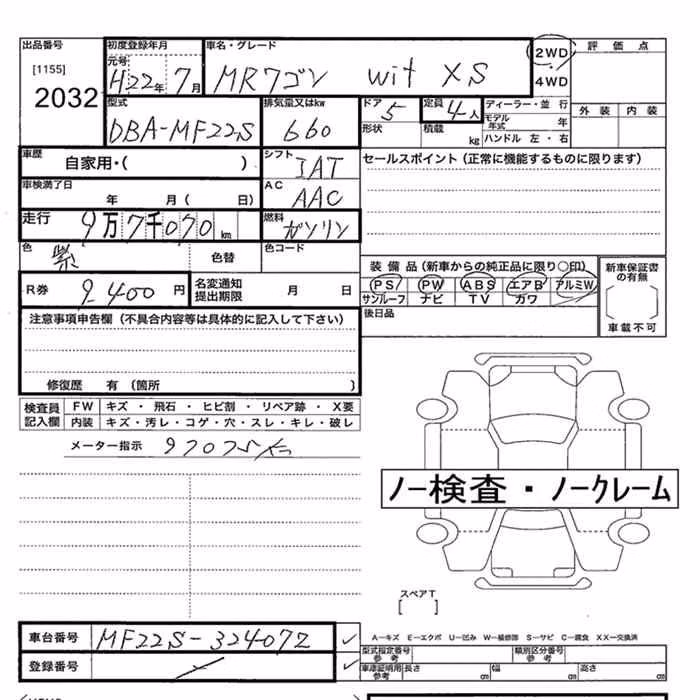 出品番号 初度登録年月 車名・グレード 2WD 評価点
[1155] 元号 H22年 7月 MRワゴン wit XS 4WD
2032
型式 排気量又はkw ドア 5 定員 4人 ディーラー・並行 外装 内装
DBA-MF22S 660 形状 積載 kg モデル年式 年
ハンドル 左・右
車歴 自家用・( ) シフト IAT セールスポイント (正常に機能するものに限ります)
車検満了日 年 月( 日) AC AAC
走行 9万7千070km 燃料 ガソリン
色 紫 色替 色コード
装備品(新車からの純正品に限り○印) 新車保証書の有無
R券 9400円 名変通知提出期限 月 日 PS PW ABS エアB アルミW
サンルーフ ナビ TV カワ
注意事項申告欄 (不具合内容等は具体的に記入して下さい) 後日品 車載不可
修復歴 有 (箇所 )
検査員記入欄 FW キズ・飛石・ヒビ割・リペア跡・X要
内装 キズ・汚レ・コゲ・穴・スレ・キレ・破レ
メーター指示 97075km
ノー検査・ノークレーム
スペアT
[ ]
車台番号 MF22S-324072 A-キズ E-エクボ U-凹み W-補修跡 S-サビ C-腐食 XX-交換済
型式指定番号 参考 類別区分番号 参考
登録番号 車庫証明用 参考 長さ cm 幅 cm 高さ cm